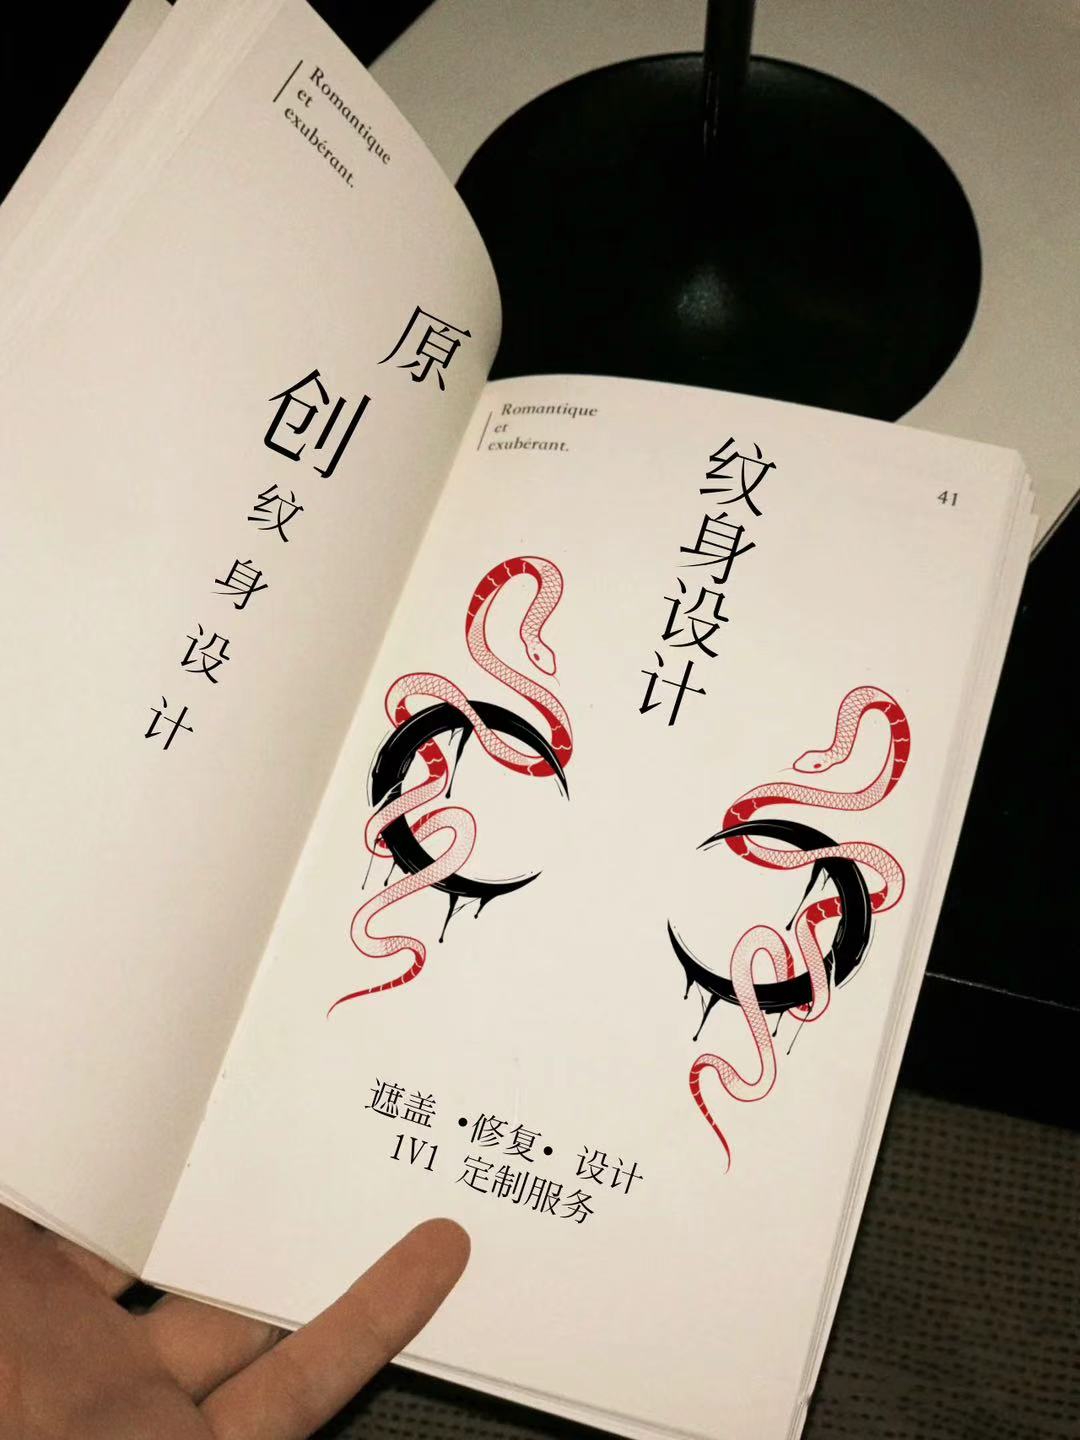 Romantique
et
exubérant.
原创纹身设计
Romantique
et
exubérant.
41
纹身设计
遮盖 •修复• 设计
1V1 定制服务